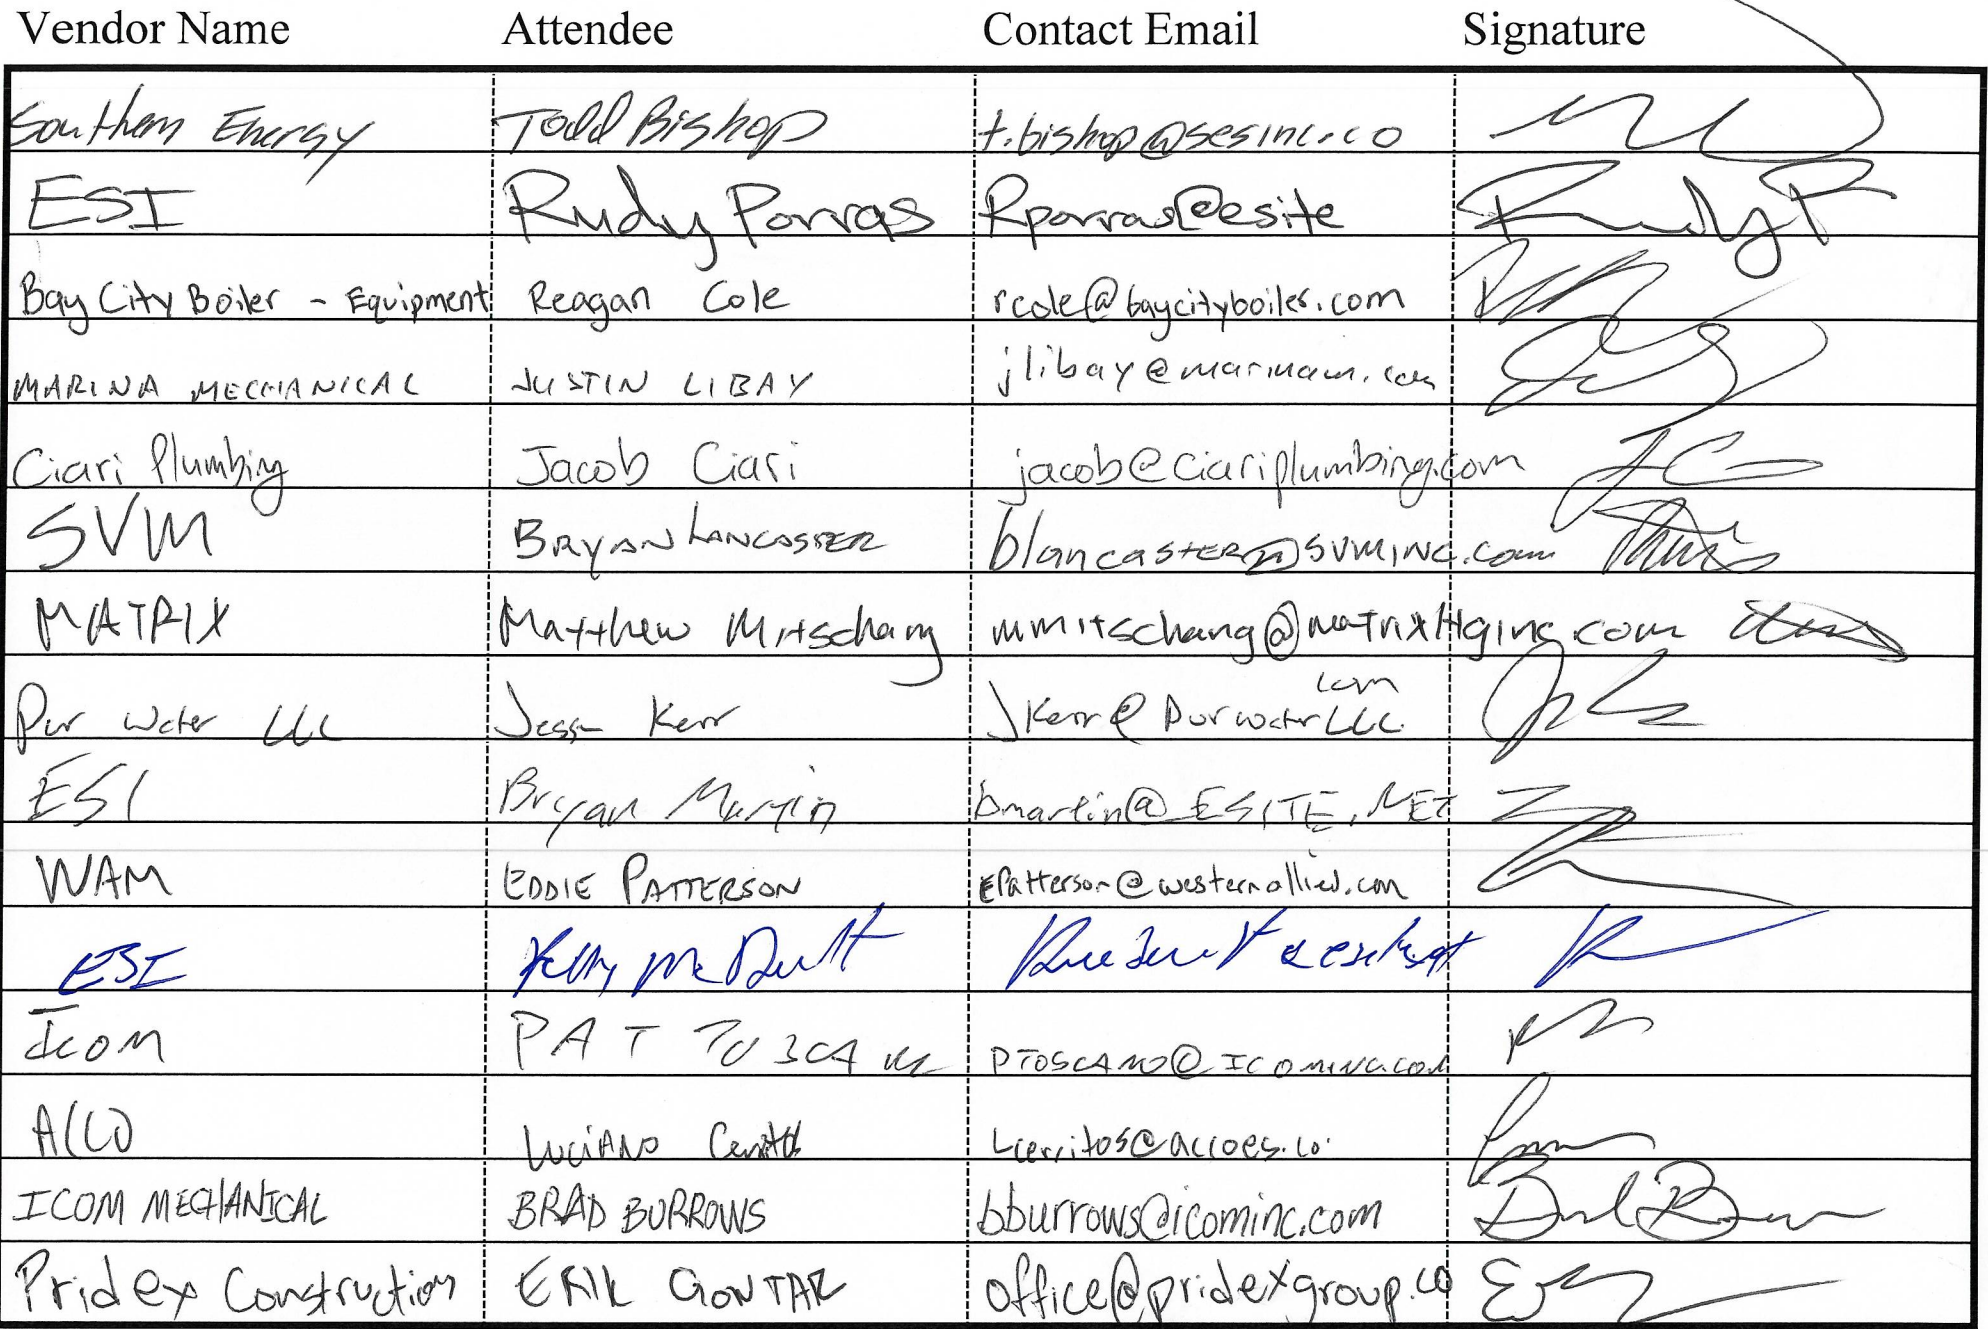 Vendor Name Attendee Contact Email Signature
Southern Energy Todd Bishop t.bishop@sesinc.co
ESI Rudy Porras Rporras@esite Rudy P
Bay City Boiler - Equipment Reagan Cole rcole@baycityboiler.com
MARINA MECHANICAL JUSTIN LIBAY jlibay@marinam.com
Ciari Plumbing Jacob Ciari jacob@ciariplumbing.com JC
SVM BRYAN LANCASTER blancaster@SVMINC.com
MATRIX Matthew Mitschang mmitschang@matrixHginc.com
Pur Water LLC Jesse Kerr JKerr@PurwaterLLC.com
ESI Bryan Martin bmartin@ESITE.NET
WAM EDDIE PATTERSON EPatterson@westernallied.com
ESI Kelly
ICOM PAT TOSCANO PTOSCANO@ICOMINC.COM
ACCO LUCIANO Lcerritos@accoes.co
ICOM MECHANICAL BRAD BURROWS bburrows@icominc.com
Pridex Construction ERIK GONTAR office@pridexgroup.co